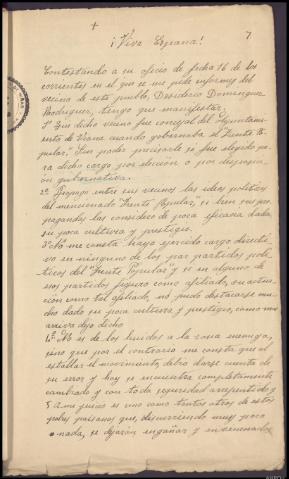 +
7
¡Viva España!
Contestando a su oficio de fecha 16 de los
corrientes en el que se me pide informes del
vecino de este pueblo, Desiderio Domínguez
Rodríguez, tengo que manifestar:
1º Que dicho vecino fue concejal del Ayuntamiento
de cuando gobernaba el "Frente Popular",
sin poder precisarle si fue elegido para
dicho cargo por elección o por disposición
gubernativa.
2º Propagó entre sus vecinos las ideas políticas
del mencionado "Frente Popular", si bien sus propagandas
las considero de poca eficacia dada
su poca cultura y prestigio.
3º No me consta haya ejercido cargo directivo
en ninguno de los partidos políticos
del "Frente Popular" y si en alguno de
sus partidos figuró como afiliado, su actuación
como tal afiliado, no pudo destacarse mucho
dado su poca cultura y prestigio, como más
arriba dejo dicho
4º No es de los huidos a la zona enemiga,
sino que por el contrario me consta que al
estallar el movimiento, debió darse cuenta de
su error y hoy se encuentra completamente
cambiado y con toda seguridad arrepentido y
5 A mi juicio es uno como tantos otros de estos
pobres paisanos que, discurriendo muy poco
o nada, se dejaron engañar y